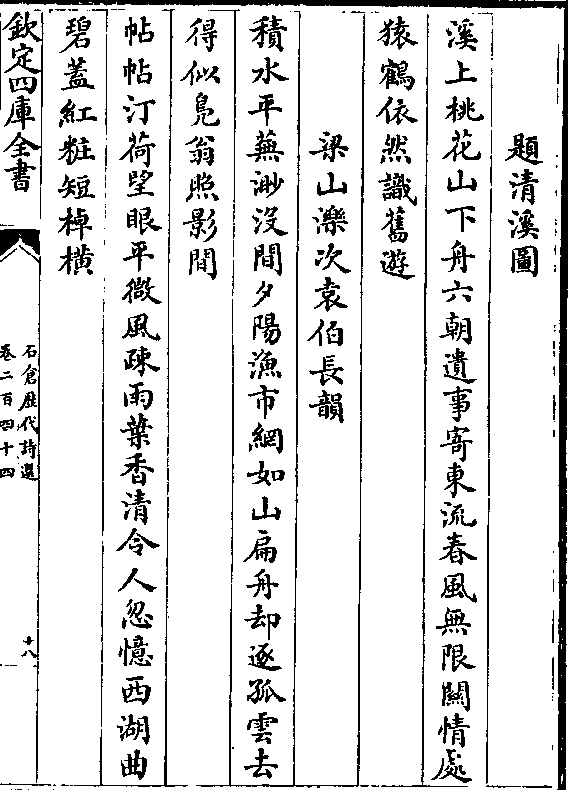 題清溪圖
溪上桃花山下舟六朝遺事寄東流春風無限關情處
猿鶴依然識舊遊
梁山濼次袁伯長韻
積水平蕪渺沒間夕陽漁市網如山扁舟却逐孤雲去
得似鳧翁照影間
帖帖汀荷望眼平微風疎雨葉香清令人忽憶西湖曲
碧蓋紅粧短棹橫
欽定四庫全書
石倉歷代詩選
卷二百四十四
十八